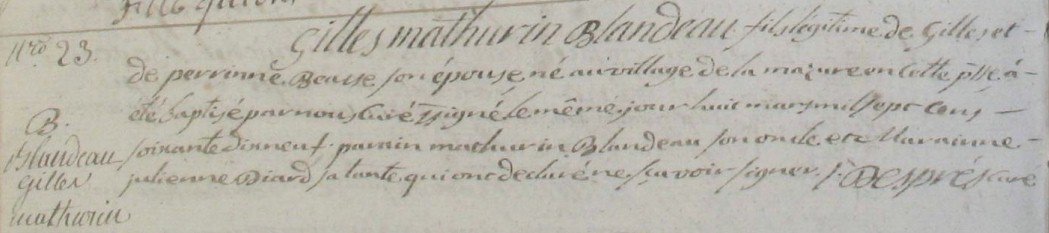 Nro 23.
Gilles mathurin Blandeau fils légitime de Gilles et
de perrinne Beasse son épouse, né au village de la mazure en cette psse, a
été baptisé par nous curé ssigné le même jour huit mars mil sept cens
soixante dix neuf. parain mathurin Blandeau son oncle et Maraine
julienne Diard sa tante qui ont declaré ne scavoir signer ./. Després curé
B.
Blandeau
Gilles
mathurin